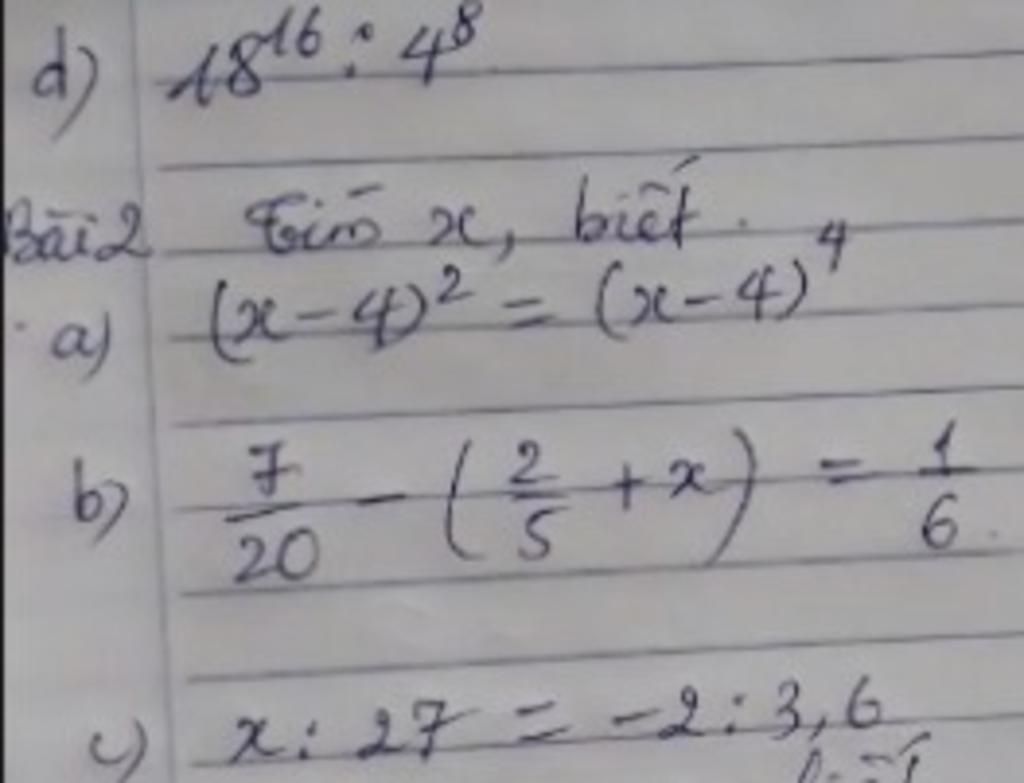 d) 18^16 : 4^8
Bài 2 Tìm x, biết.
a) (x-4)^2 = (x-4)^4
b) 7/20 - (2/5 + x) = 1/6.
c) x : 27 = -2 : 3,6
biết